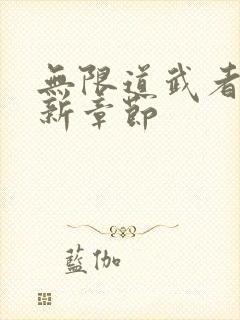 無限道武者
新章節
藍伽